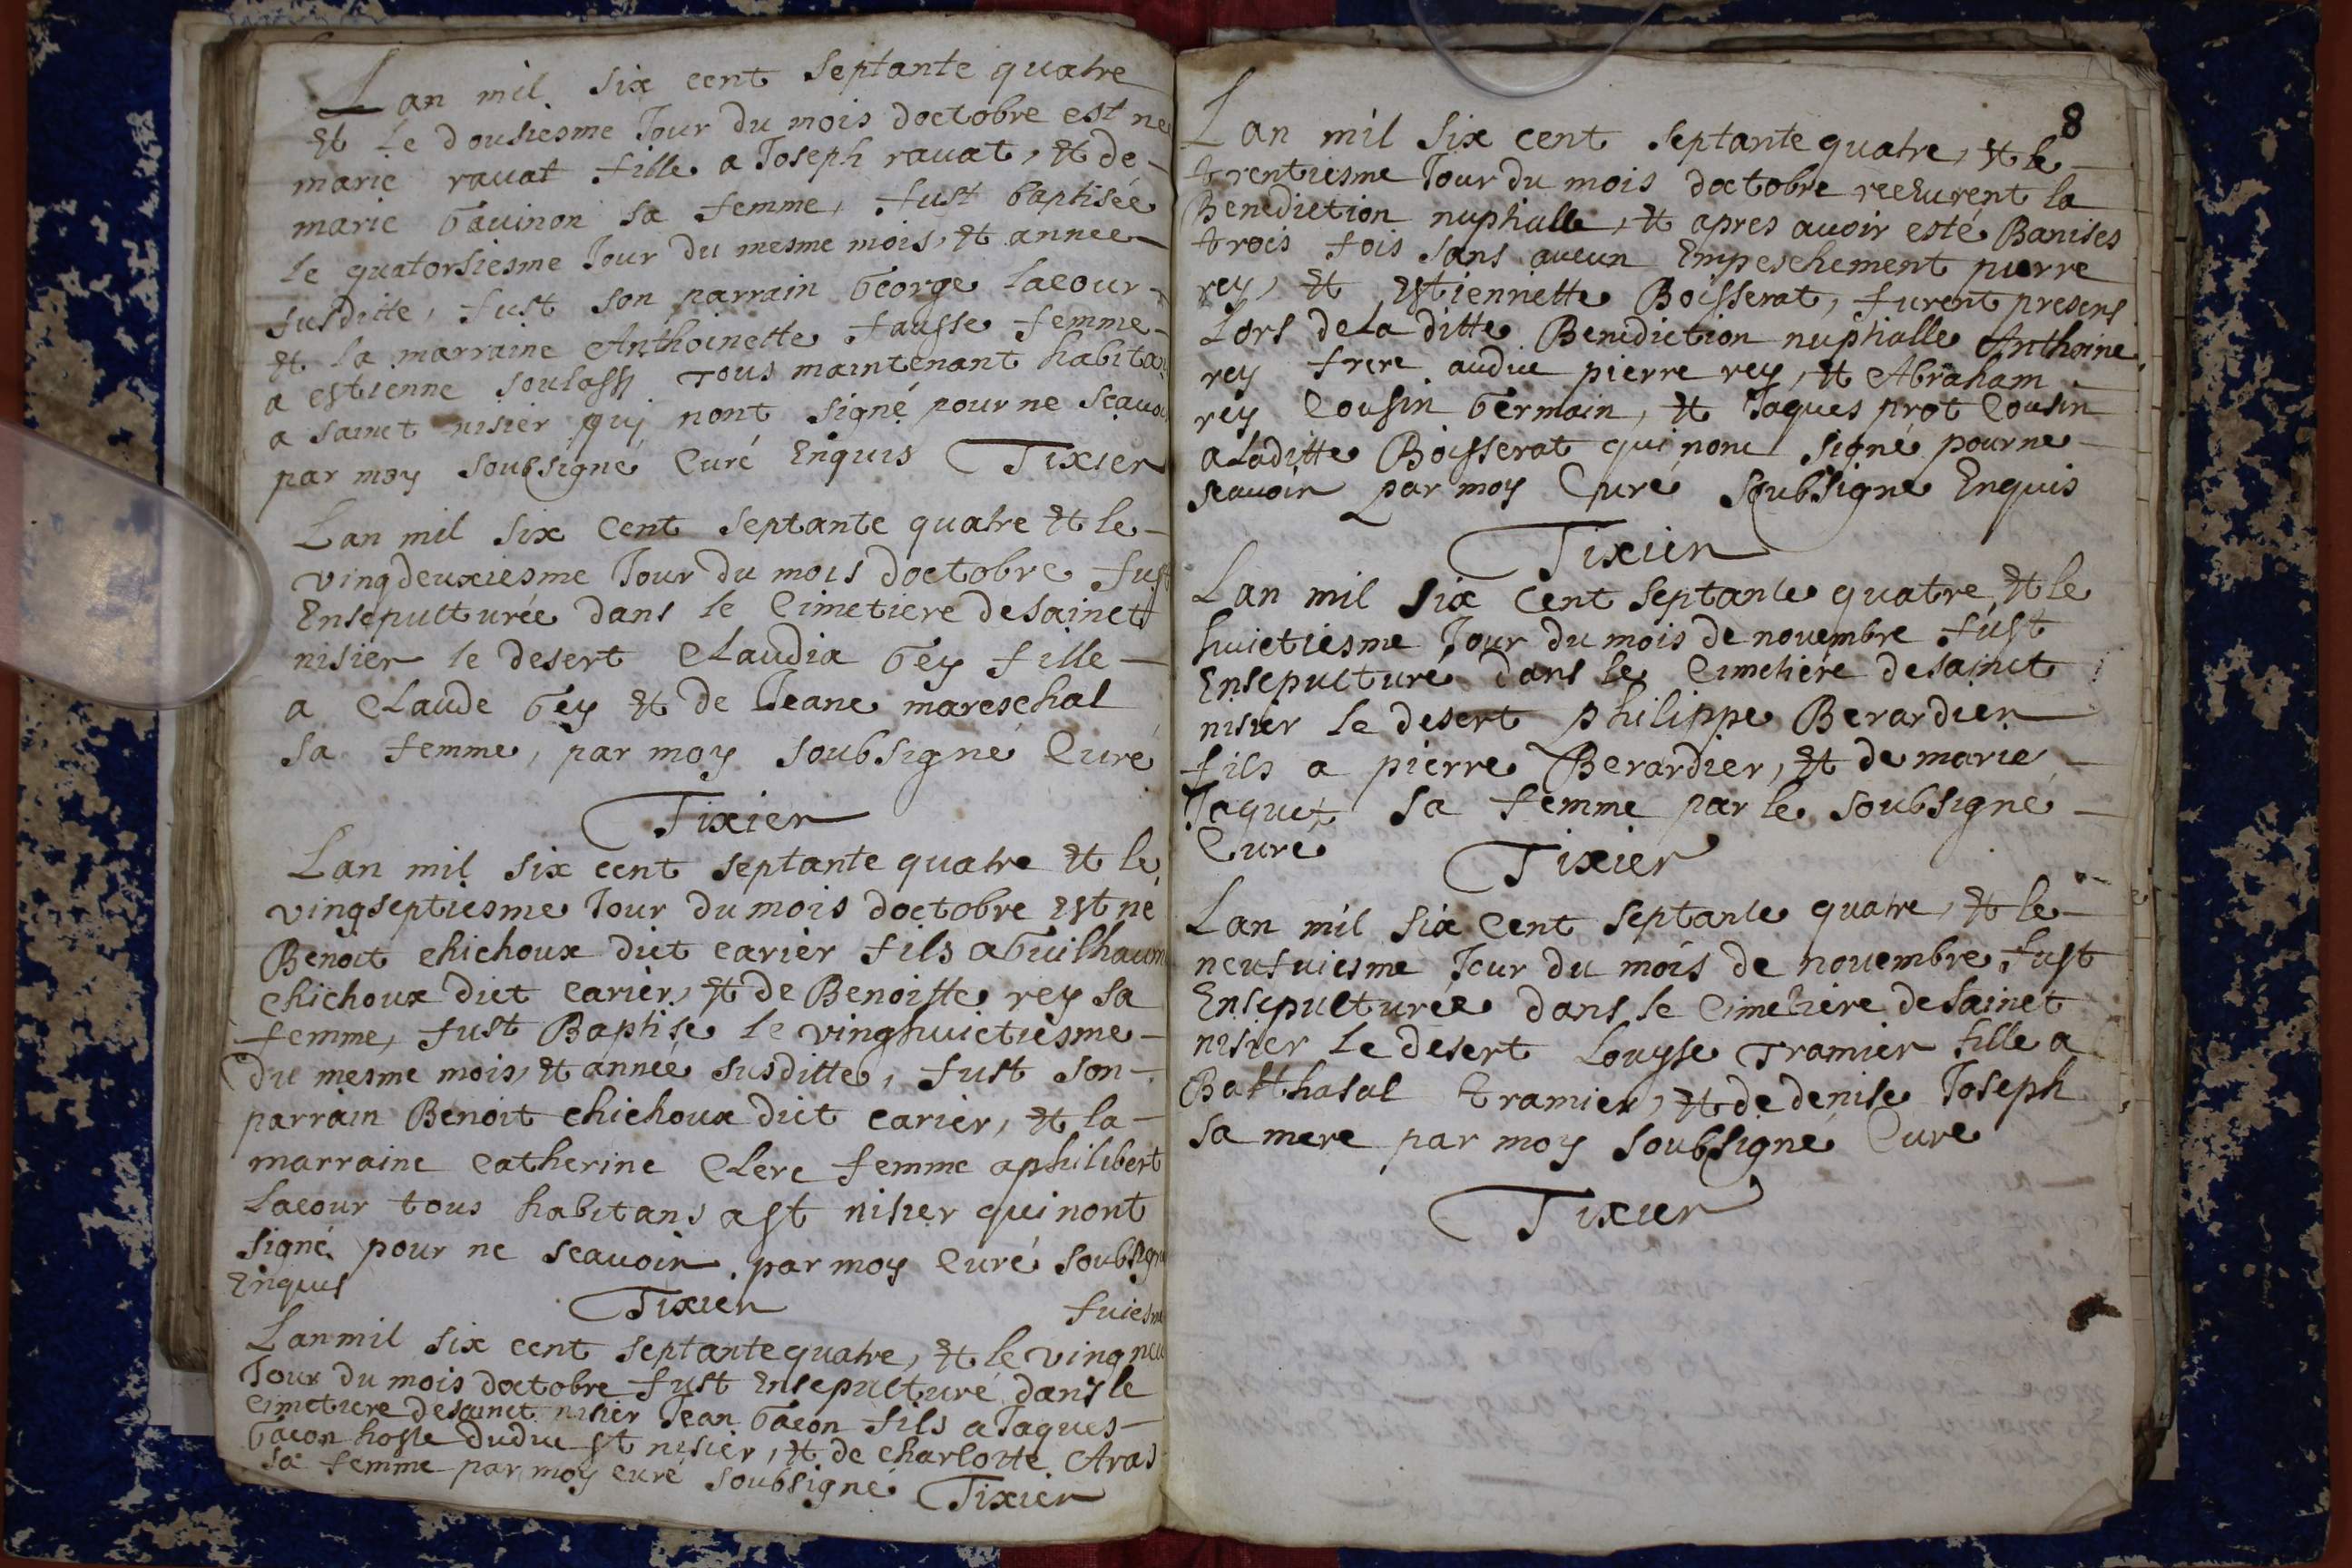 Lan mil six cent septante quatre
et le dousiesme Jour du mois doctobre est ne
marie rauat fille a Joseph rauat, et de
marie Gauinon sa femme, fust baptisée
le quatorsiesme Jour du mesme mois, et annee
susditte, fust son parrain George Lacour
et la marraine Anthoinette fausse femme
a estienne soulassi tous maintenant habita
a sainct nisier qui nont signé pour ne scauoi
par moy soubsigné Curé Enquis Tixier
Lan mil six Cent septante quatre et le
vingdeuxiesme Jour du mois doctobre fust
Ensepulturée dans le Cimetiere de sainct
nisier le desert Claudia Gey fille
a Claude Gey et de Jeane mareschal
sa femme, par moy soubsigné Curé
Tixier
Lan mil six cent septante quatre et le
vingseptiesme Jour du mois doctobre est né
Benoit chichoux dict carier fils a Guilhaum
chichoux dict Carier, et de Benoiste rey sa
femme, fust Baptise le vinghuictiesme
du mesme mois, et année susditte, fust son
parrain Benoit chichoux dict carier, et la
marraine Catherine Clerc femme a philibert
Lacour tous habitans a st nisier qui nont
signé pour ne scauoir par moy Curé soubsigne
Enquis
Tixier
fuiesme
Lan mil six cent septante quatre, et le ving neu
Jour du mois doctobre fust Ensepulturé dans le
Cimetiere de sainct nisier Jean Gacon fils a Jaques
Gacon hoste dudict st nisier, et de Charlotte Aras
sa femme par moy curé soubsigné Tixier
8
Lan mil six cent septante quatre, et le
trentiesme Jour du mois doctobre receurent la
Benediction nuptialle, et apres auoir esté Banises
trois fois sans aucun Empeschement pierre
rey, et Estiennette Boisserat, furent presens
Lors de la ditte Benediction nuptialle Anthoine
rey frere audict pierre rey, et Abraham
rey Cousin Germain, et Jaques prot Cousin
a laditte Boisserat qui nont signé pour ne
scauoir par moy Curé soubsigne Enquis
Tixier
Lan mil six Cent septante quatre, et le
huictiesme Jour du mois de nouembre fust
Ensepulturé dans le Cimetiere de sainct
nisier le desert philippe Berardier
fils a pierre Berardier, et de marie
Jaquet sa femme par le soubsigné
Curé Tixier
Lan mil six Cent septante quatre, et le
neufuiesme Jour du mois de nouembre fust
Ensepulturée dans le Cimetiere de sainct
nisier Le desert Louyse Tramier fille a
Balthasal tramier, et de denise Joseph
sa mere par moy soubsigné Curé
Tixier